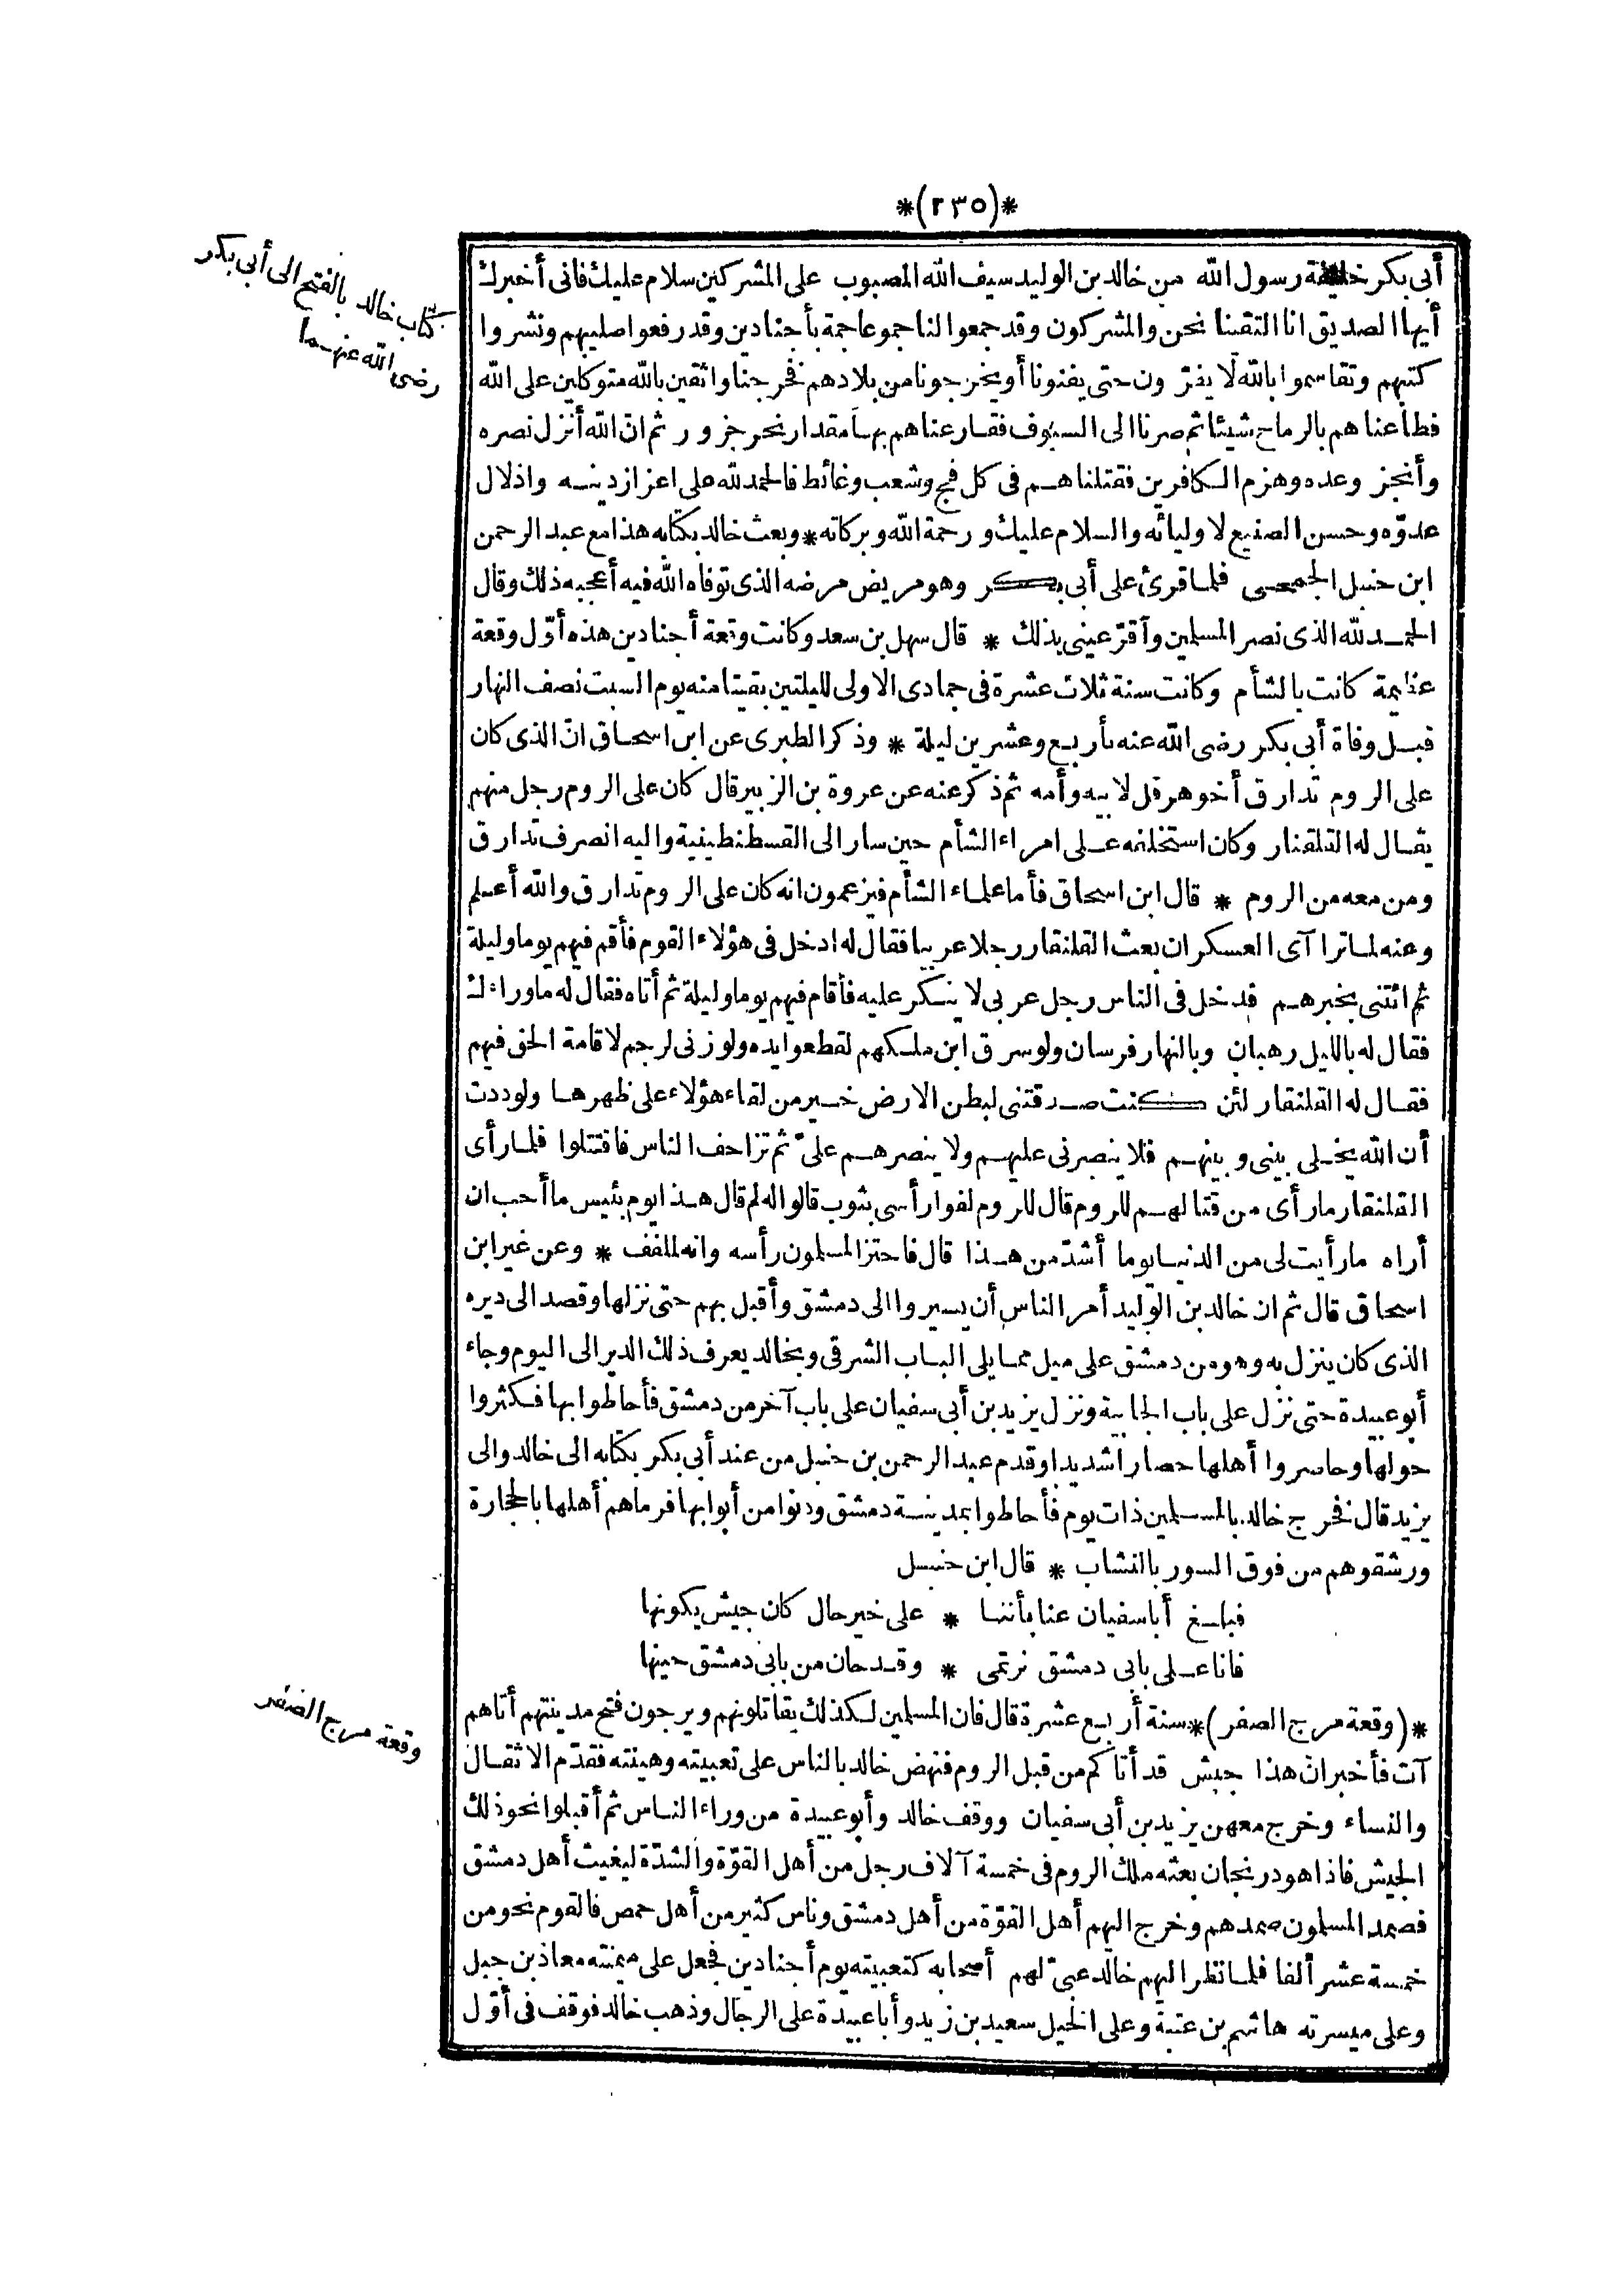 *(٢٣٥)*
كتاب خالد بالفتح الى أبى بكر
رضى الله عنهـما
أبى بكر خليفة رسول الله من خالد بن الوليد سيف الله المصبوب على المشركين سلام عليك فانى أخبرك
أيها الصديق انا التقينا نحن والمشركون وقد جمعوا لنا جموعا جمة بأجنادين وقد رفعوا صلبهم ونشروا
كتبهم وتقاسموا بالله لا يفرّون حتى يفنونا أو يخرجونا من بلادهم فخرجنا واثقين بالله متوكلين على الله
فطاعناهم بالرماح شيئا ثم صرنا الى السيوف فقارعناهم بها مقدار نحر جزور ثم ان الله أنزل نصره
وأنجز وعده وهزم الكافرين فقتلناهـم فى كل فج وشعب وغائط فالحمد لله على اعزاز دينـه واذلال
عدوّه وحسن الصنيع لاوليائه والسلام عليك ورحمة الله وبركاته * وبعث خالد بكتابه هذا مع عبد الرحمن
ابن حنبل الجمحى فلما قرئ على أبى بكر وهو مريض مرضه الذى توفاه الله فيه أعجبه ذلك وقال
الحمد لله الذى نصر المسلمين وأقرّ عينى بذلك * قال سهل بن سعد وكانت وقعة أجنادين هذه أوّل وقعة
عظيمة كانت بالشأم وكانت سنة ثلاث عشرة فى جمادى الاولى لليلتين بقيتا منه يوم السبت نصف النهار
قبـل وفاة أبى بكر رضى الله عنه بأربـع وعشرين ليلة * وذكر الطبرى عن ابن اسحاق انّ الذى كان
على الروم تدارق أخو هرقل لابيه وأمه ثم ذكر عنه عن عروة بن الزبير قال كان على الروم رجل منهم
يقال له القلقنار وكان استخلفه عـلى امراء الشأم حين سار الى القسطنطينية واليه انصرف تدارق
ومن معه من الروم * قال ابن اسحاق فأما علماء الشأم فيزعمون انه كان على الروم تدارق والله أعلم
وعنه لما تراآى العسكران بعث القلنقار رجلا عربيا فقال له ادخل فى هؤلاء القوم فأقم فيهم يوما وليلة
ثم ائتنى بخبرهـم فدخل فى الناس رجل عربى لا ينكر عليه فأقام فيهم يوما وليلة ثم أتاه فقال له ما وراءك
فقال له بالليل رهبان وبالنهار فرسان ولو سرق ابن ملكهم لقطعوا يده ولو زنى لرجم لاقامة الحق فيهم
فقال له القلنقار لئن كنت صدقتنى لبطن الارض خـير من لقاء هؤلاء على ظهرها ولوددت
أن الله يخـلى بينى وبينهـم فلا ينصرنى عليهـم ولا ينصرهـم علىّ ثم تزاحف الناس فاقتتلوا فلما رأى
القلنقار ما رأى من قتالهـم للروم قال للروم لفوا رأسى بثوب قالوا له لم قال هـذا يوم بئيس ما أحب ان
أراه ما رأيت لى من الدنيا يوما أشدّ من هـذا قال فاحتز المسلمون رأسه وانه لملفف * وعن غير ابن
اسحاق قال ثم ان خالد بن الوليد أمر الناس أن يسيروا الى دمشق وأقبل بهم حتى نزلها وقصد الى ديره
الذى كان ينزل به وهو من دمشق على ميل مما يلى الباب الشرقى وبخالد يعرف ذلك الدير الى اليوم وجاء
أبو عبيدة حتى نزل على باب الجابية ونزل يزيد بن أبى سفيان على باب آخر من دمشق فأحاطوا بها فكثروا
حولها وحاصروا أهلها حصارا شديدا وقدم عبد الرحمن بن حنبل من عند أبى بكر بكتابه الى خالد والى
يزيد قال فخرج خالد بالمسلمين ذات يوم فأحاطوا بمدينـة دمشق ودنوا من أبوابها فرماهم أهلها بالحجارة
ورشقوهم من فوق السور بالنشاب * قال ابن حنبـل
فبلـغ أبا سفيان عنا بأننـا * على خير حال كان جيش يكونها
فانا عـلى بابى دمشق نرتمى * وقـد حان من بابى دمشق حينها
وقعة مرج الصفر
*(وقعة مرج الصفر)* سنة أربـع عشرة قال فان المسلمين لكذلك يقاتلونهم ويرجون فتح مدينتهم أتاهم
آت فأخبر ان هذا جيش قد أتاكم من قبل الروم فنهض خالد بالناس على تعبيته وهيئته فقدّم الاثقال
والنساء وخرج معهن يزيد بن أبى سفيان ووقف خالد وأبو عبيدة من وراء الناس ثم أقبلوا نحو ذلك
الجيش فاذا هو درنجان بعثه ملك الروم فى خمسة آلاف رجل من أهل القوّة والشدّة ليغيث أهل دمشق
فصمد المسلمون صمدهم وخرج اليهم أهل القوّة من أهل دمشق وناس كثير من أهل حمص فالقوم نحو من
خمسة عشر ألفا فلما نظر اليهم خالد عبىّ لهم أصحابه كتعبيته يوم أجنادين فجعل على ميمنته معاذ بن جبل
وعلى ميسرته هاشم بن عتبة وعلى الخيل سعيد بن زيد وأبا عبيدة على الرجال وذهب خالد فوقف فى أوّل